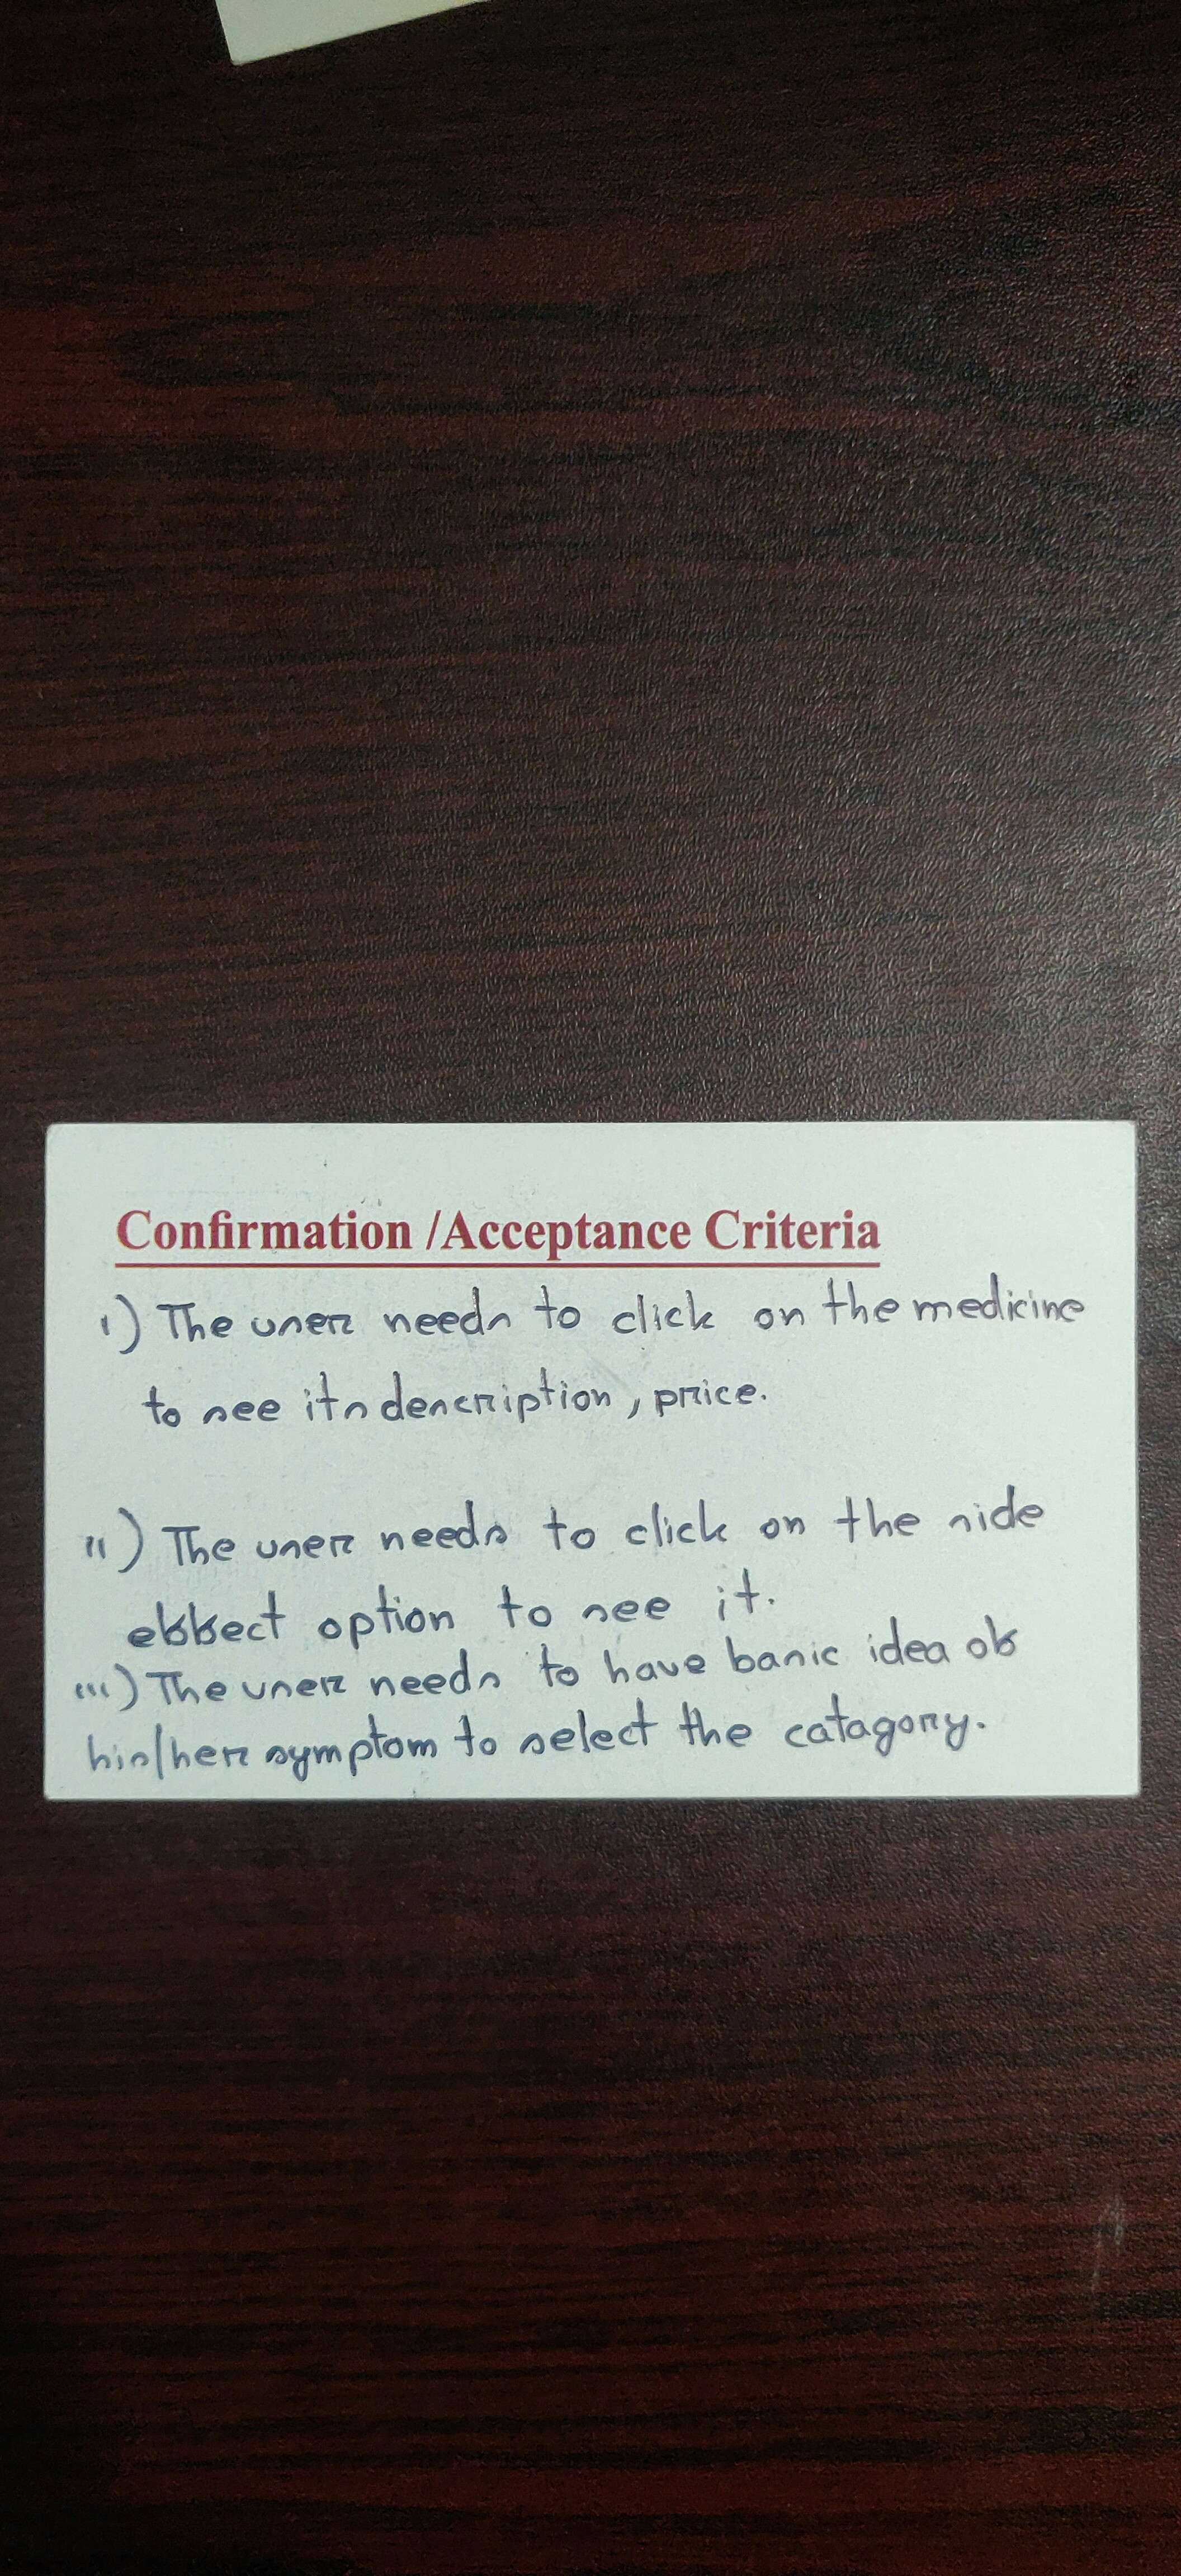 Confirmation /Acceptance Criteria
i) The user needs to click on the medicine
to see its description, price.
ii) The user needs to click on the side
effect option to see it.
iii) The user needs to have basic idea of
his/her symptom to select the catagory.